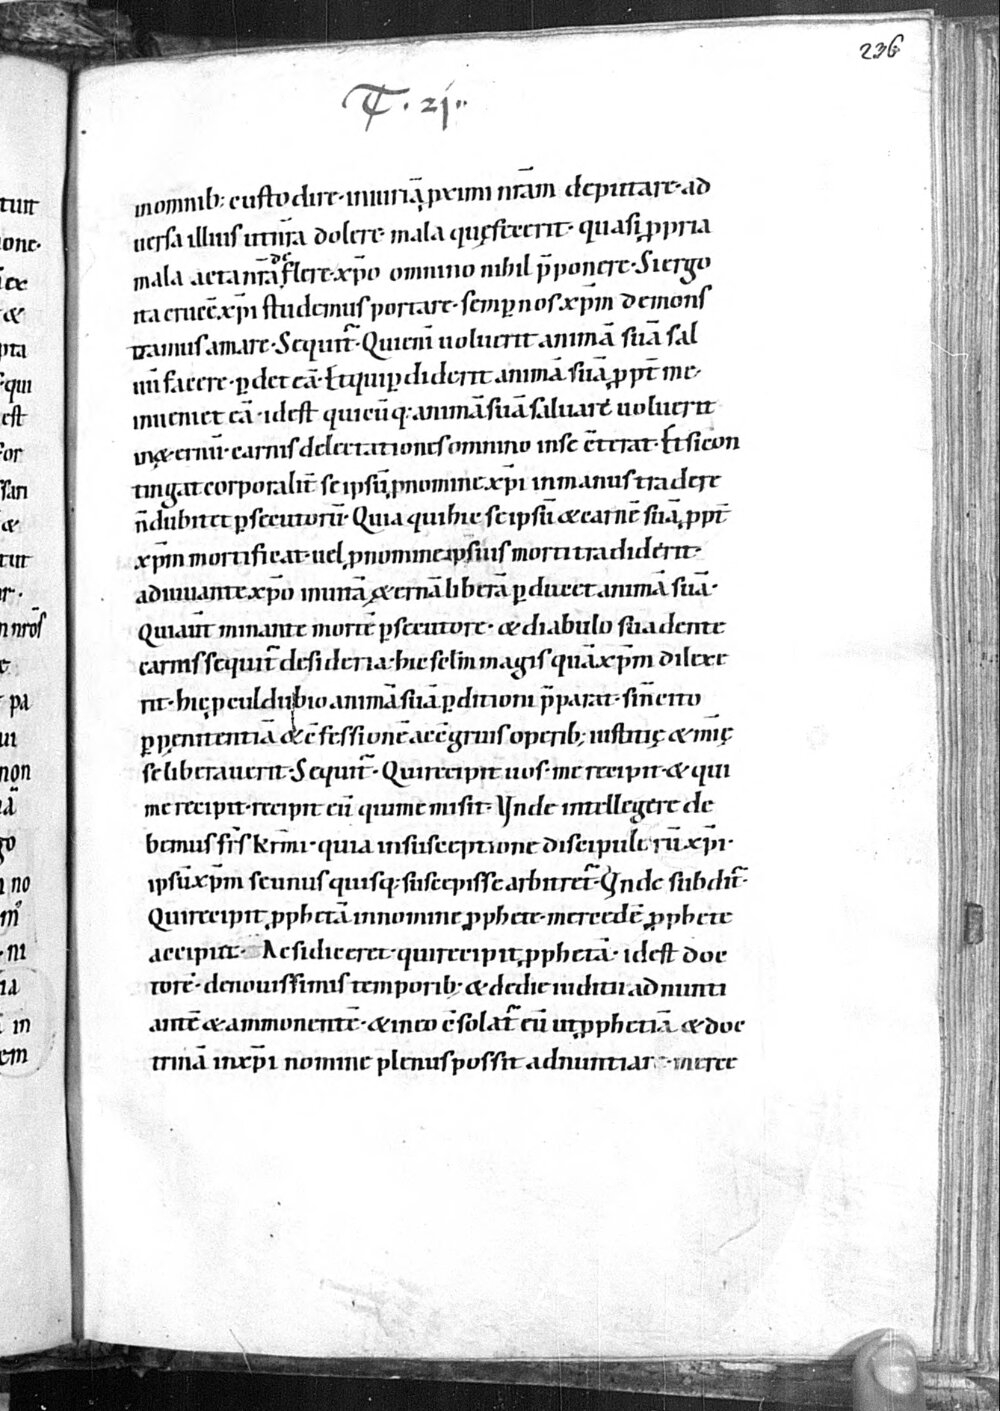 236
T. 21..
inomnib; custodire· iniuriā p̱ximi nr̄am deputare· ad
uersa illius ut nr̄a dolere· mala quę fecerit· quasi ꝓpria
mala ac tanr̄a deflere· xp̄o omnino nihil p̄ponere· Si ergo
ita crucē xp̄i studemus portare· semp̱ nos xp̄m demons
tramus amare· Sequit᷑· Qui eni᷑ uoluerit animā suā sal
uā facere· p̱det eā· Et qui p̱diderit animā suā ꝓpt̄ me·
inueniet eā· idest quicūq; animā suā saluare uoluerit
carnis delectationes omnino inse c̄terat· Et sicon
tingat corporalit᷑ se ipsū ꝓ nomine xp̄i inmanus tradere
n̄ dubitet p̱secutorū· Quia qui hic seipsū & carnē suā ꝓpt̄
xp̄m mortificat· uel ꝓ nomine ipsius morti tradiderit·
adiuuante xp̄o inuitā &ernā liberā p̱ducet animā suā·
Quiaut̄ minante mortē p̱secutore· & diabulo suadente
carnis sequit᷑ desideria· hic se lin magis quā xp̄m dilexe
rit· hic ꝓcul dubio animā suā p̱ditioni p̄parat· sin̄ cito
p̱ pęnitentiā & c̄fessionē ac c̄gruis operib; iustitię & mi᷑ę
se liberauerit· Sequit᷑· Qui recipit uos· me recipit· & qui
me recipit· recipit eū qui me misit· Vnde intellegere de
bemus fr̄s kr̄mi· quia in susceptione discipulorū xp̄i·
ipsū xp̄m se unus quisq; suscepisse arbitret᷑· Vnde subdit᷑·
Qui recipit ꝓphetā innomine ꝓphete· mercedē ꝓphete
accipiet· Ac si diceret· qui recipit ꝓphetā· idest doc
torē· denouissimis temporib; & de die iudicii adnunti
antē & ammonentē· & ineo c̄solat᷑ eū ut ꝓphetiā & doc
trinā inxp̄i nomine plenus possit adnuntiare· merce